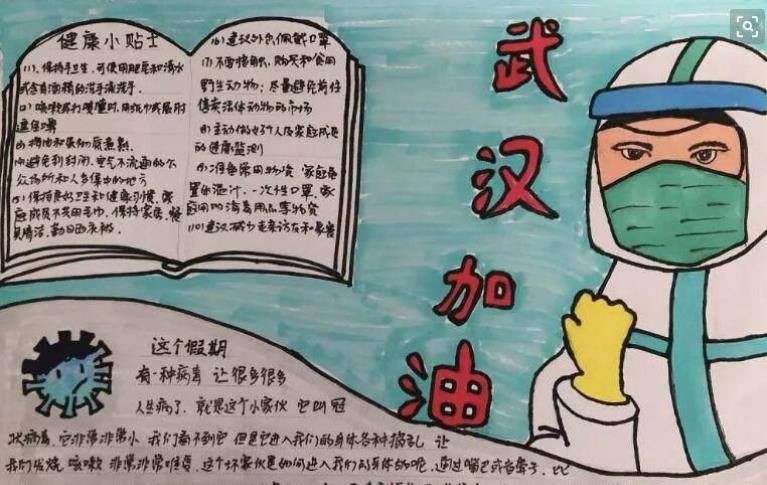 健康小贴士
(1)、保持手卫生,可使用肥皂和清水
或含有酒精的洗手液洗手.
(2) 咳嗽或打喷嚏时,用纸巾或屈肘
遮住口鼻
(3) 将肉和蛋彻底煮熟.
(4) 避免到封闭、空气不流通的公
众场所和人多集中的地方
(5) 保持良好卫生和健康习惯,家
庭成员不共用毛巾,保持家居、餐
具清洁,勤日晒衣被.
(6) 建议外出佩戴口罩
(7) 不要接触、购买和食用
野生动物;尽量避免前往
售卖活体动物的市场
(8) 主动做好个人及家庭成员
的健康监测
(9) 准备常用物资,家庭备
置体温计、一次性口罩、家
庭用的消毒用品等物资
(10) 建议减少走亲访友和聚餐
武
汉
加
油
这个假期
有一种病毒 让很多很多
人生病了. 就是这个小家伙 它叫 冠
状病毒. 它非常非常小 我们看不到它 但是它进入我们的身体各种捣乱 让
我们发烧 咳嗽 非常非常难受. 这个坏家伙是如何进入我们的身体的呢,通过嘴巴或者鼻子. 比